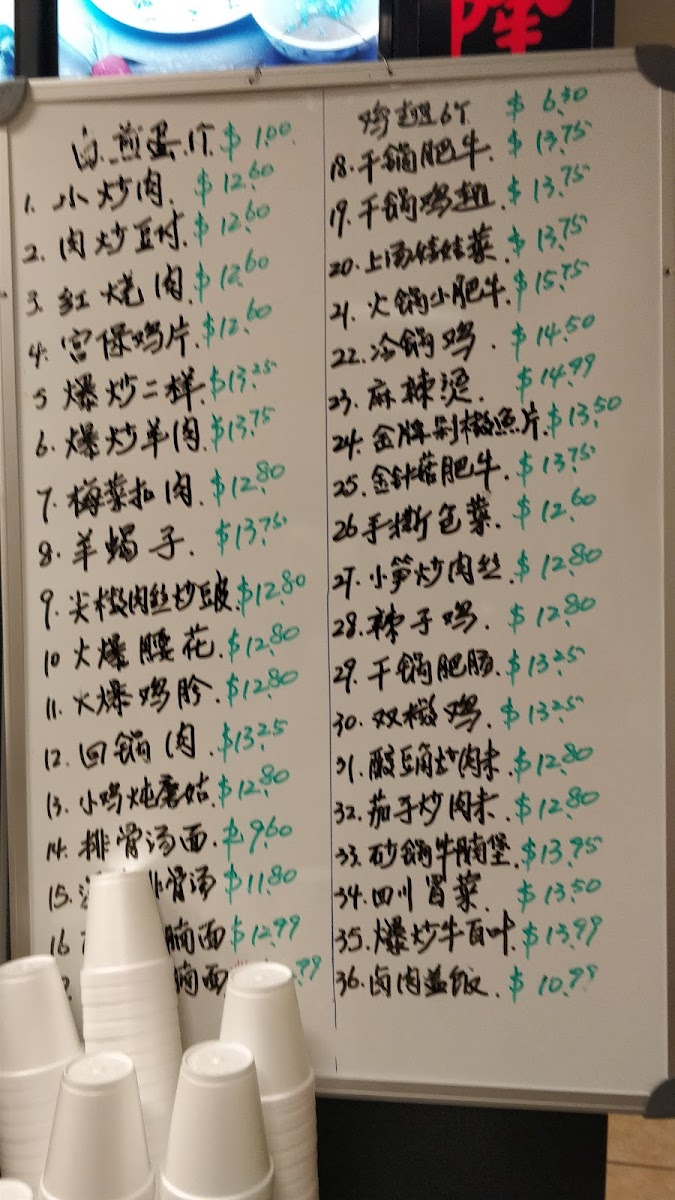 隆
白.煎蛋.1个 $1.00
1. 小炒肉. $12.60
2. 肉炒豆付. $12.60
3. 红烧肉 $12.60
4. 宫保鸡片. $12.60
5 爆炒二样 $13.25
6. 爆炒羊肉 $13.75
7. 梅菜扣肉. $12.80
8. 羊蝎子. $13.75
9. 尖椒肉丝炒豆皮 $12.80
10 火爆腰花. $12.80
11. 火爆鸡肫. $12.80
12. 回锅肉. $13.25
13. 小鸡炖蘑菇. $12.80
14. 排骨汤面. $9.60
15. 排骨汤 $11.80
16 腩面 $12.99
腩面 .99
鸡翅6个 $6.30
18. 干锅肥牛. $13.75
19. 干锅鸡翅. $13.75
20. 上汤娃娃菜. $13.75
21. 火锅小肥牛. $15.75
22. 冷锅鸡. $14.50
23. 麻辣烫. $14.99
24. 金牌剁椒鱼片. $13.50
25. 金针菇肥牛. $13.75
26 手撕包菜. $12.60
27. 小笋炒肉丝. $12.80
28. 辣子鸡. $12.80
29. 干锅肥肠. $13.25
30. 双椒鸡. $13.25
31. 酸豆角炒肉末. $12.80
32. 茄子炒肉末. $12.80
33. 砂锅牛腩堡. $13.95
34. 四川冒菜. $13.50
35. 爆炒牛百叶. $13.99
36. 卤肉盖饭. $10.99